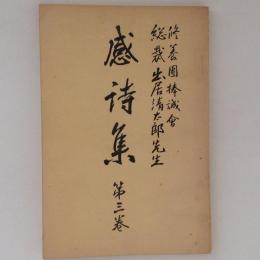 修養團捧誠會
総裁出居清太郎先生
感詩集
第三巻